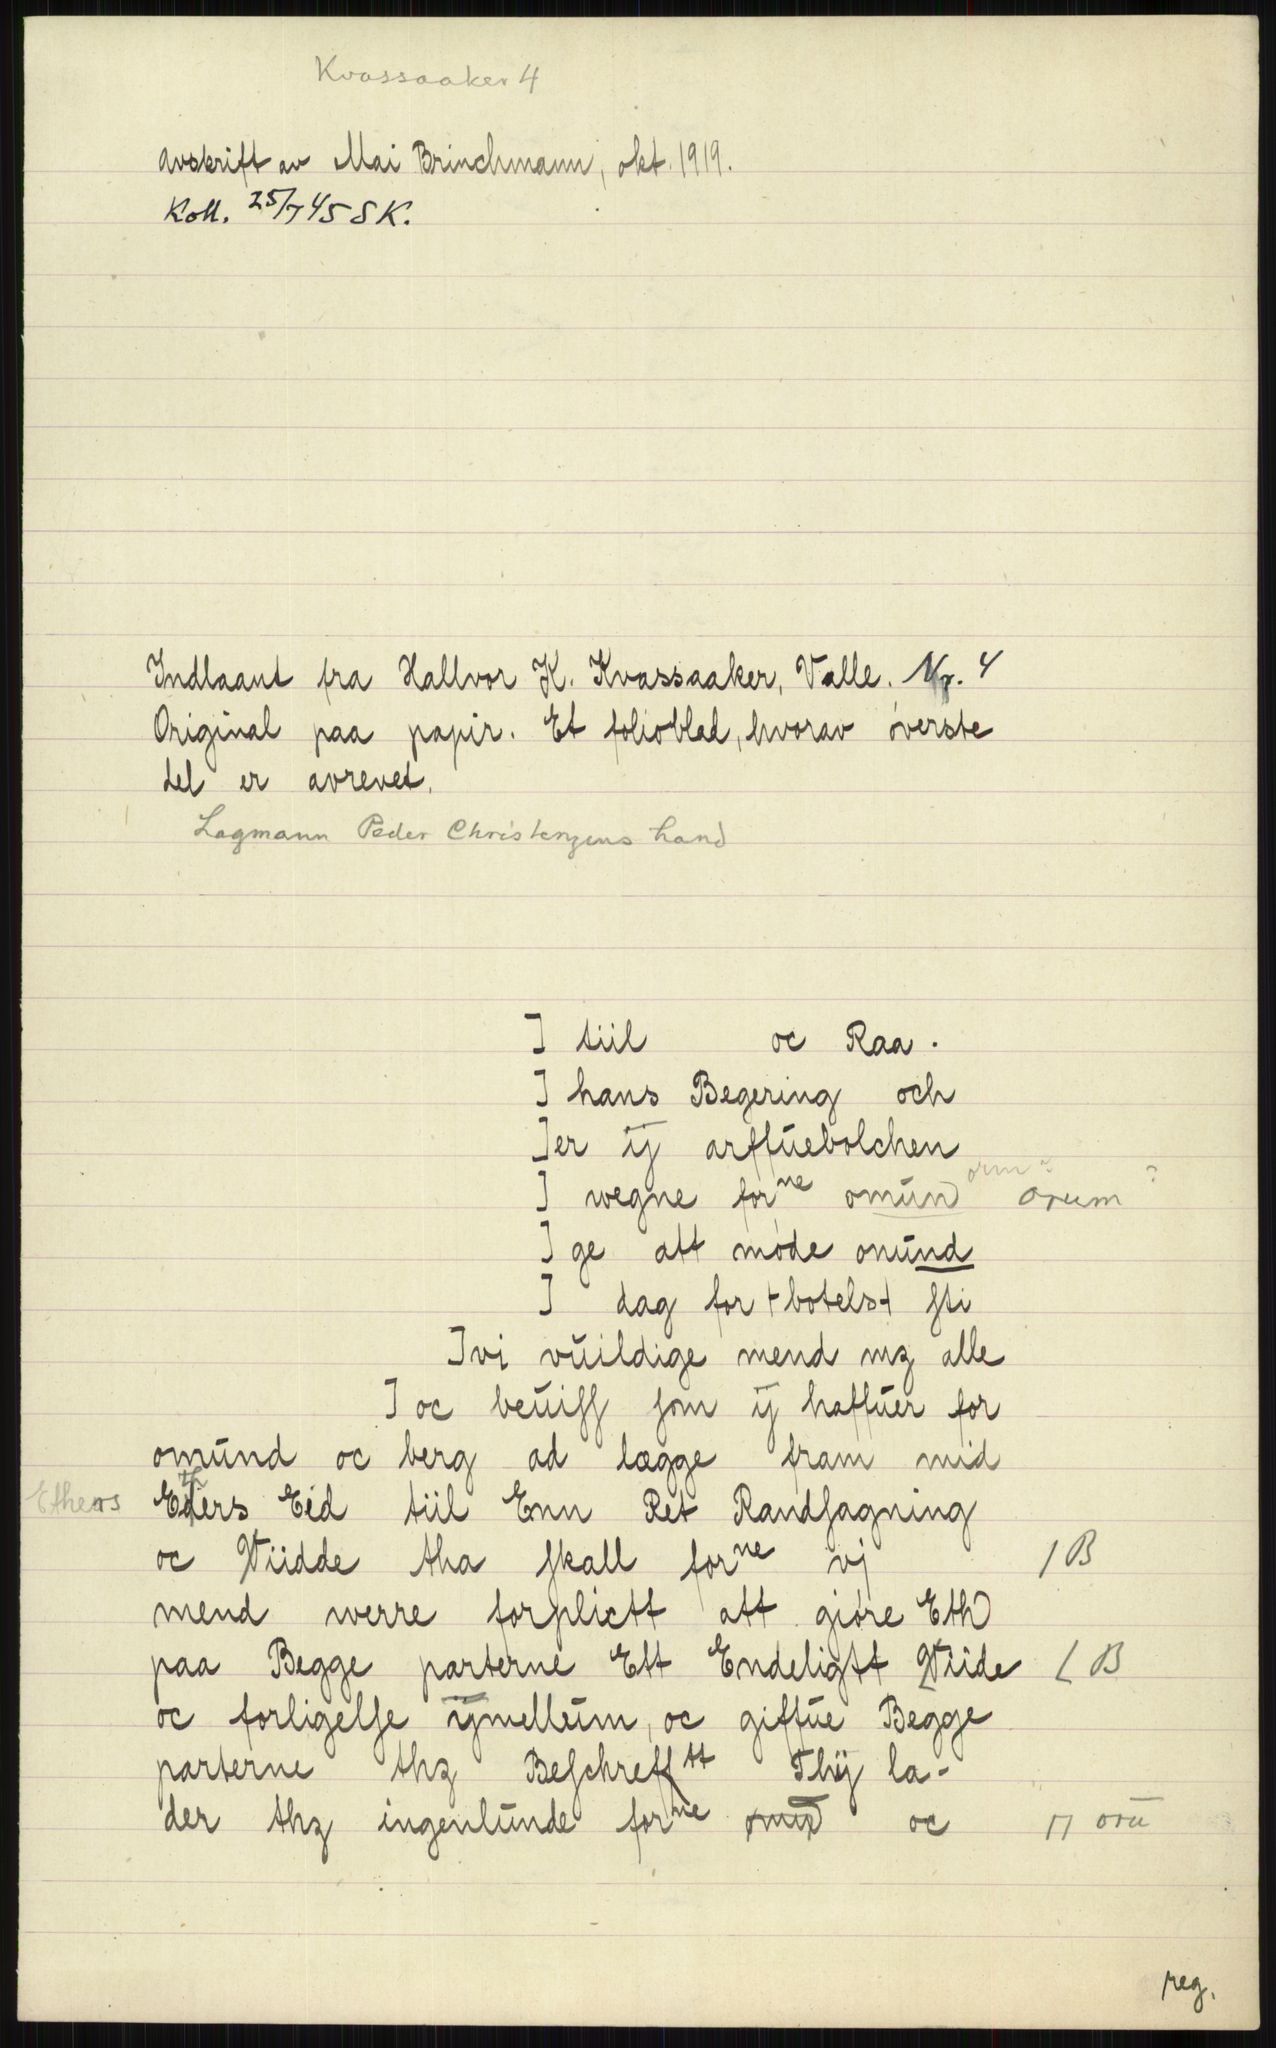 Kvassaaker 4
Avskrift av Mai Brinchmann, okt. 1919.
Koll. 25/7 45 SK.
Indlaant fra Hallvor K. Kvassaaker, Valle. Nr. 4
Original paa papir. Et folioblad, hvorav øverste
del er avrevet.
Lagmann Peder Christenzens hand
] tiil oc Raa.
] hans Begering och
]er ij arffuebolchen
] wegne forne omŭnd orm? orum?
] ge att møde onŭnd
] dag for botels ſti
]vi vŭildige mend mz alle
] oc beŭiſſ ſom ij haffŭer for
omŭnd oc berg ad lægge fram mid
Ethers Eders th Eid tiil Enn Ret Randſagning
oc Viidde tha ſkall forne vj / B
mend werre forplictt att giøre Eth
paa Begge parterne Ett Endeligtt Viide L B
oc forligelſe ijmellŭm, oc giffŭe Begge
parterne thz Beſchrefftt Thij la-
der thz ingenlŭnde forne omŭd oc orŭ
reg.